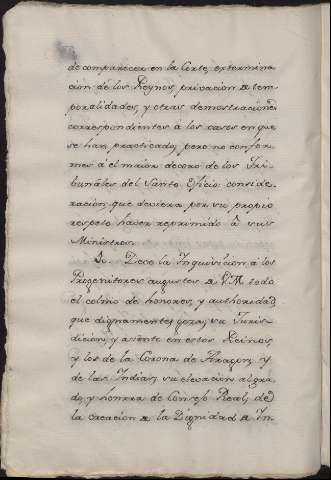 de comparecer en la Corte, extermina
cion de los Reynos, privacion de tem
poralidades, y otras demostraciones
correspondientes á los casos en que
se han practicado, pero no confor-
mes á el maior decoro de los Tri-
bunales del Santo Oficio: conside-
racion que deviera por su propio
respeto haver reprimido á sus
Ministros.
Deve la Inquisicion á los
Progenitores augustos de V.M. todo
el colmo de honores, y authoridad
que dignamente goza; su Juris-
diccion, y asiento en estos Reinos,
y los de la Corona de Aragon, y
de las Indias; su elevacion al gra-
do, y honrra de Consejo Real; de
la creacion de la Dignidad de In-